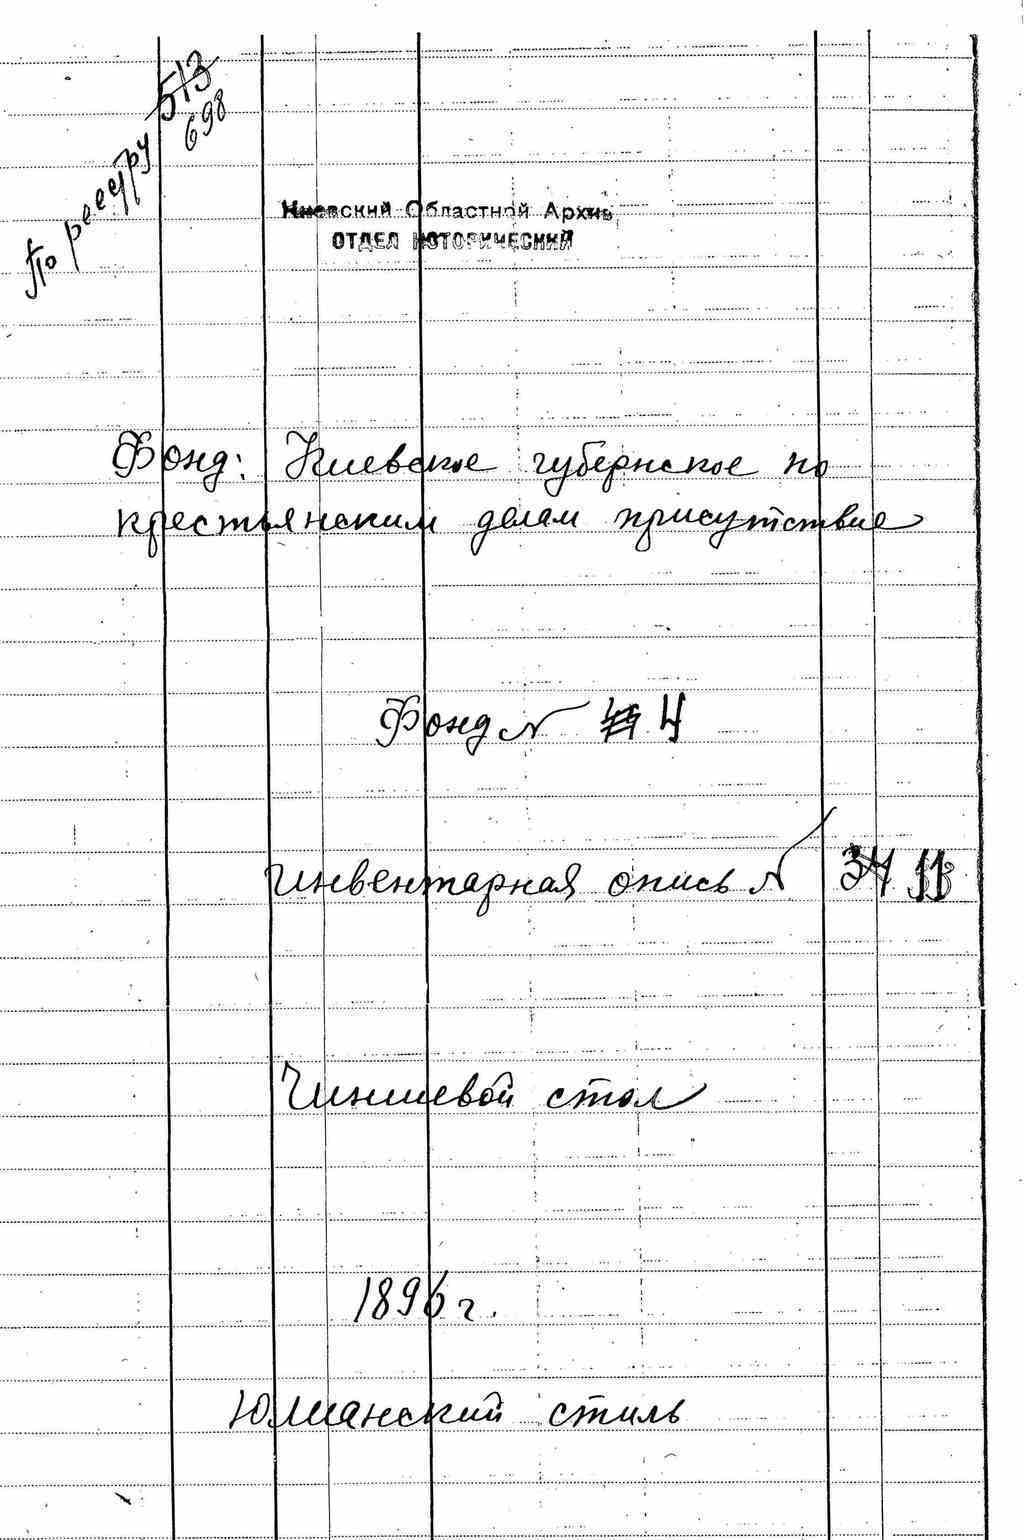 По реестру 513
698
Киевский Областной Архив,
ОТДЕЛ ИСТОРИЧЕСКИЙ
Фонд: Киевское губернское по
крестьянским делам присутствие
Фонд № 4
Инвентарная опись № 34
Чиншевой стол
1896 г.
Юлианский стиль